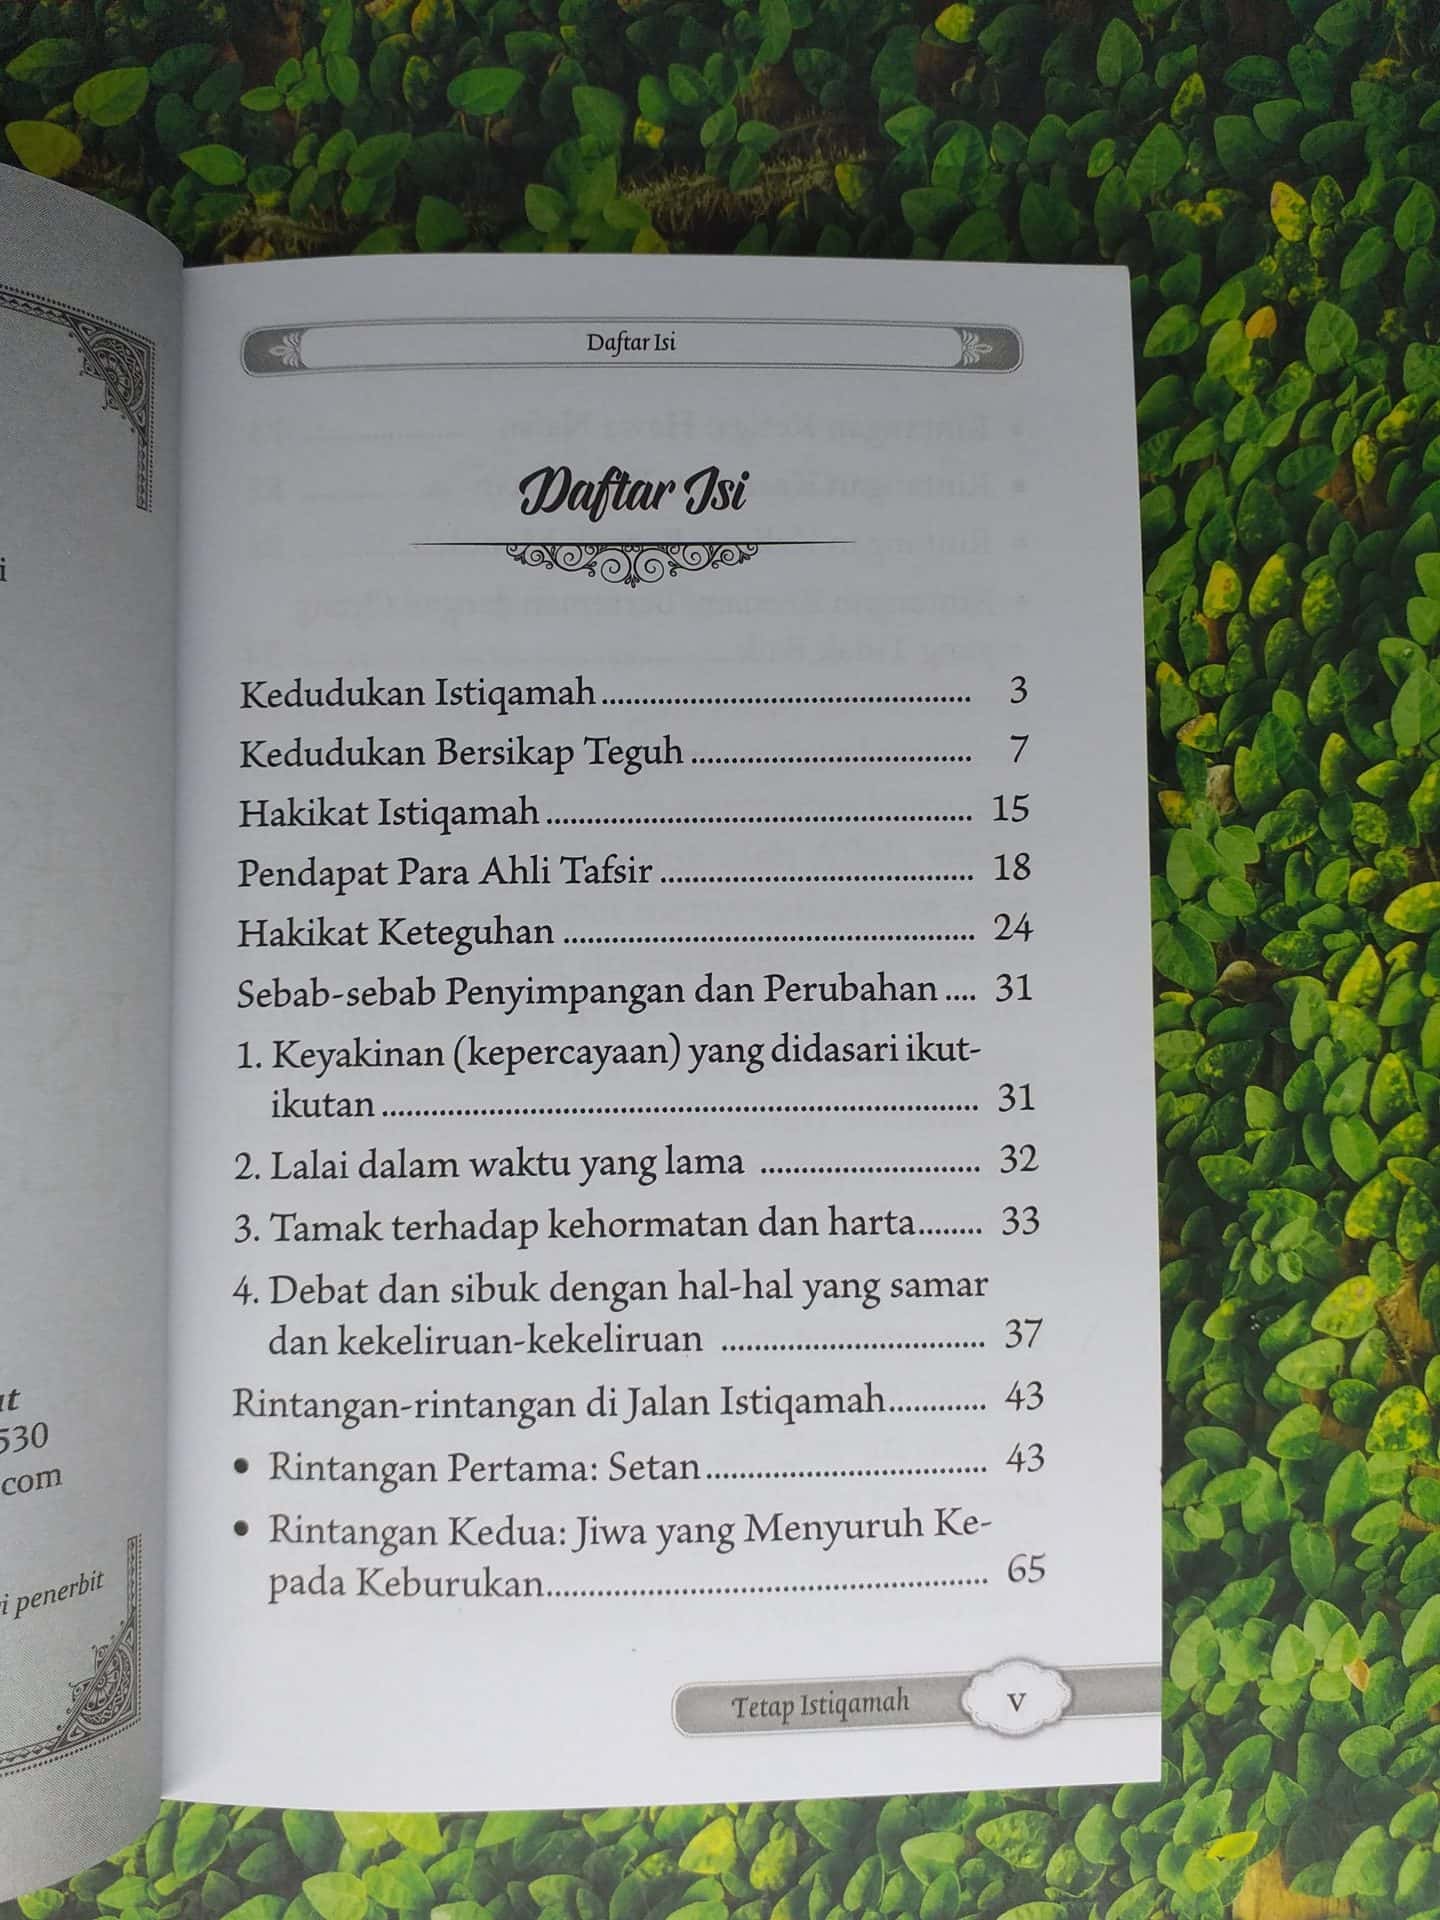 i
at
530
.com
i penerbit
Daftar Isi
Daftar Isi
Kedudukan Istiqamah............................................. 3
Kedudukan Bersikap Teguh .................................. 7
Hakikat Istiqamah.................................................... 15
Pendapat Para Ahli Tafsir ...................................... 18
Hakikat Keteguhan .................................................. 24
Sebab-sebab Penyimpangan dan Perubahan .... 31
1. Keyakinan (kepercayaan) yang didasari ikut-
ikutan ......................................................................... 31
2. Lalai dalam waktu yang lama ........................... 32
3. Tamak terhadap kehormatan dan harta........ 33
4. Debat dan sibuk dengan hal-hal yang samar
dan kekeliruan-kekeliruan ................................ 37
Rintangan-rintangan di Jalan Istiqamah............ 43
• Rintangan Pertama: Setan.................................. 43
• Rintangan Kedua: Jiwa yang Menyuruh Ke-
pada Keburukan...................................................... 65
Tetap Istiqamah v